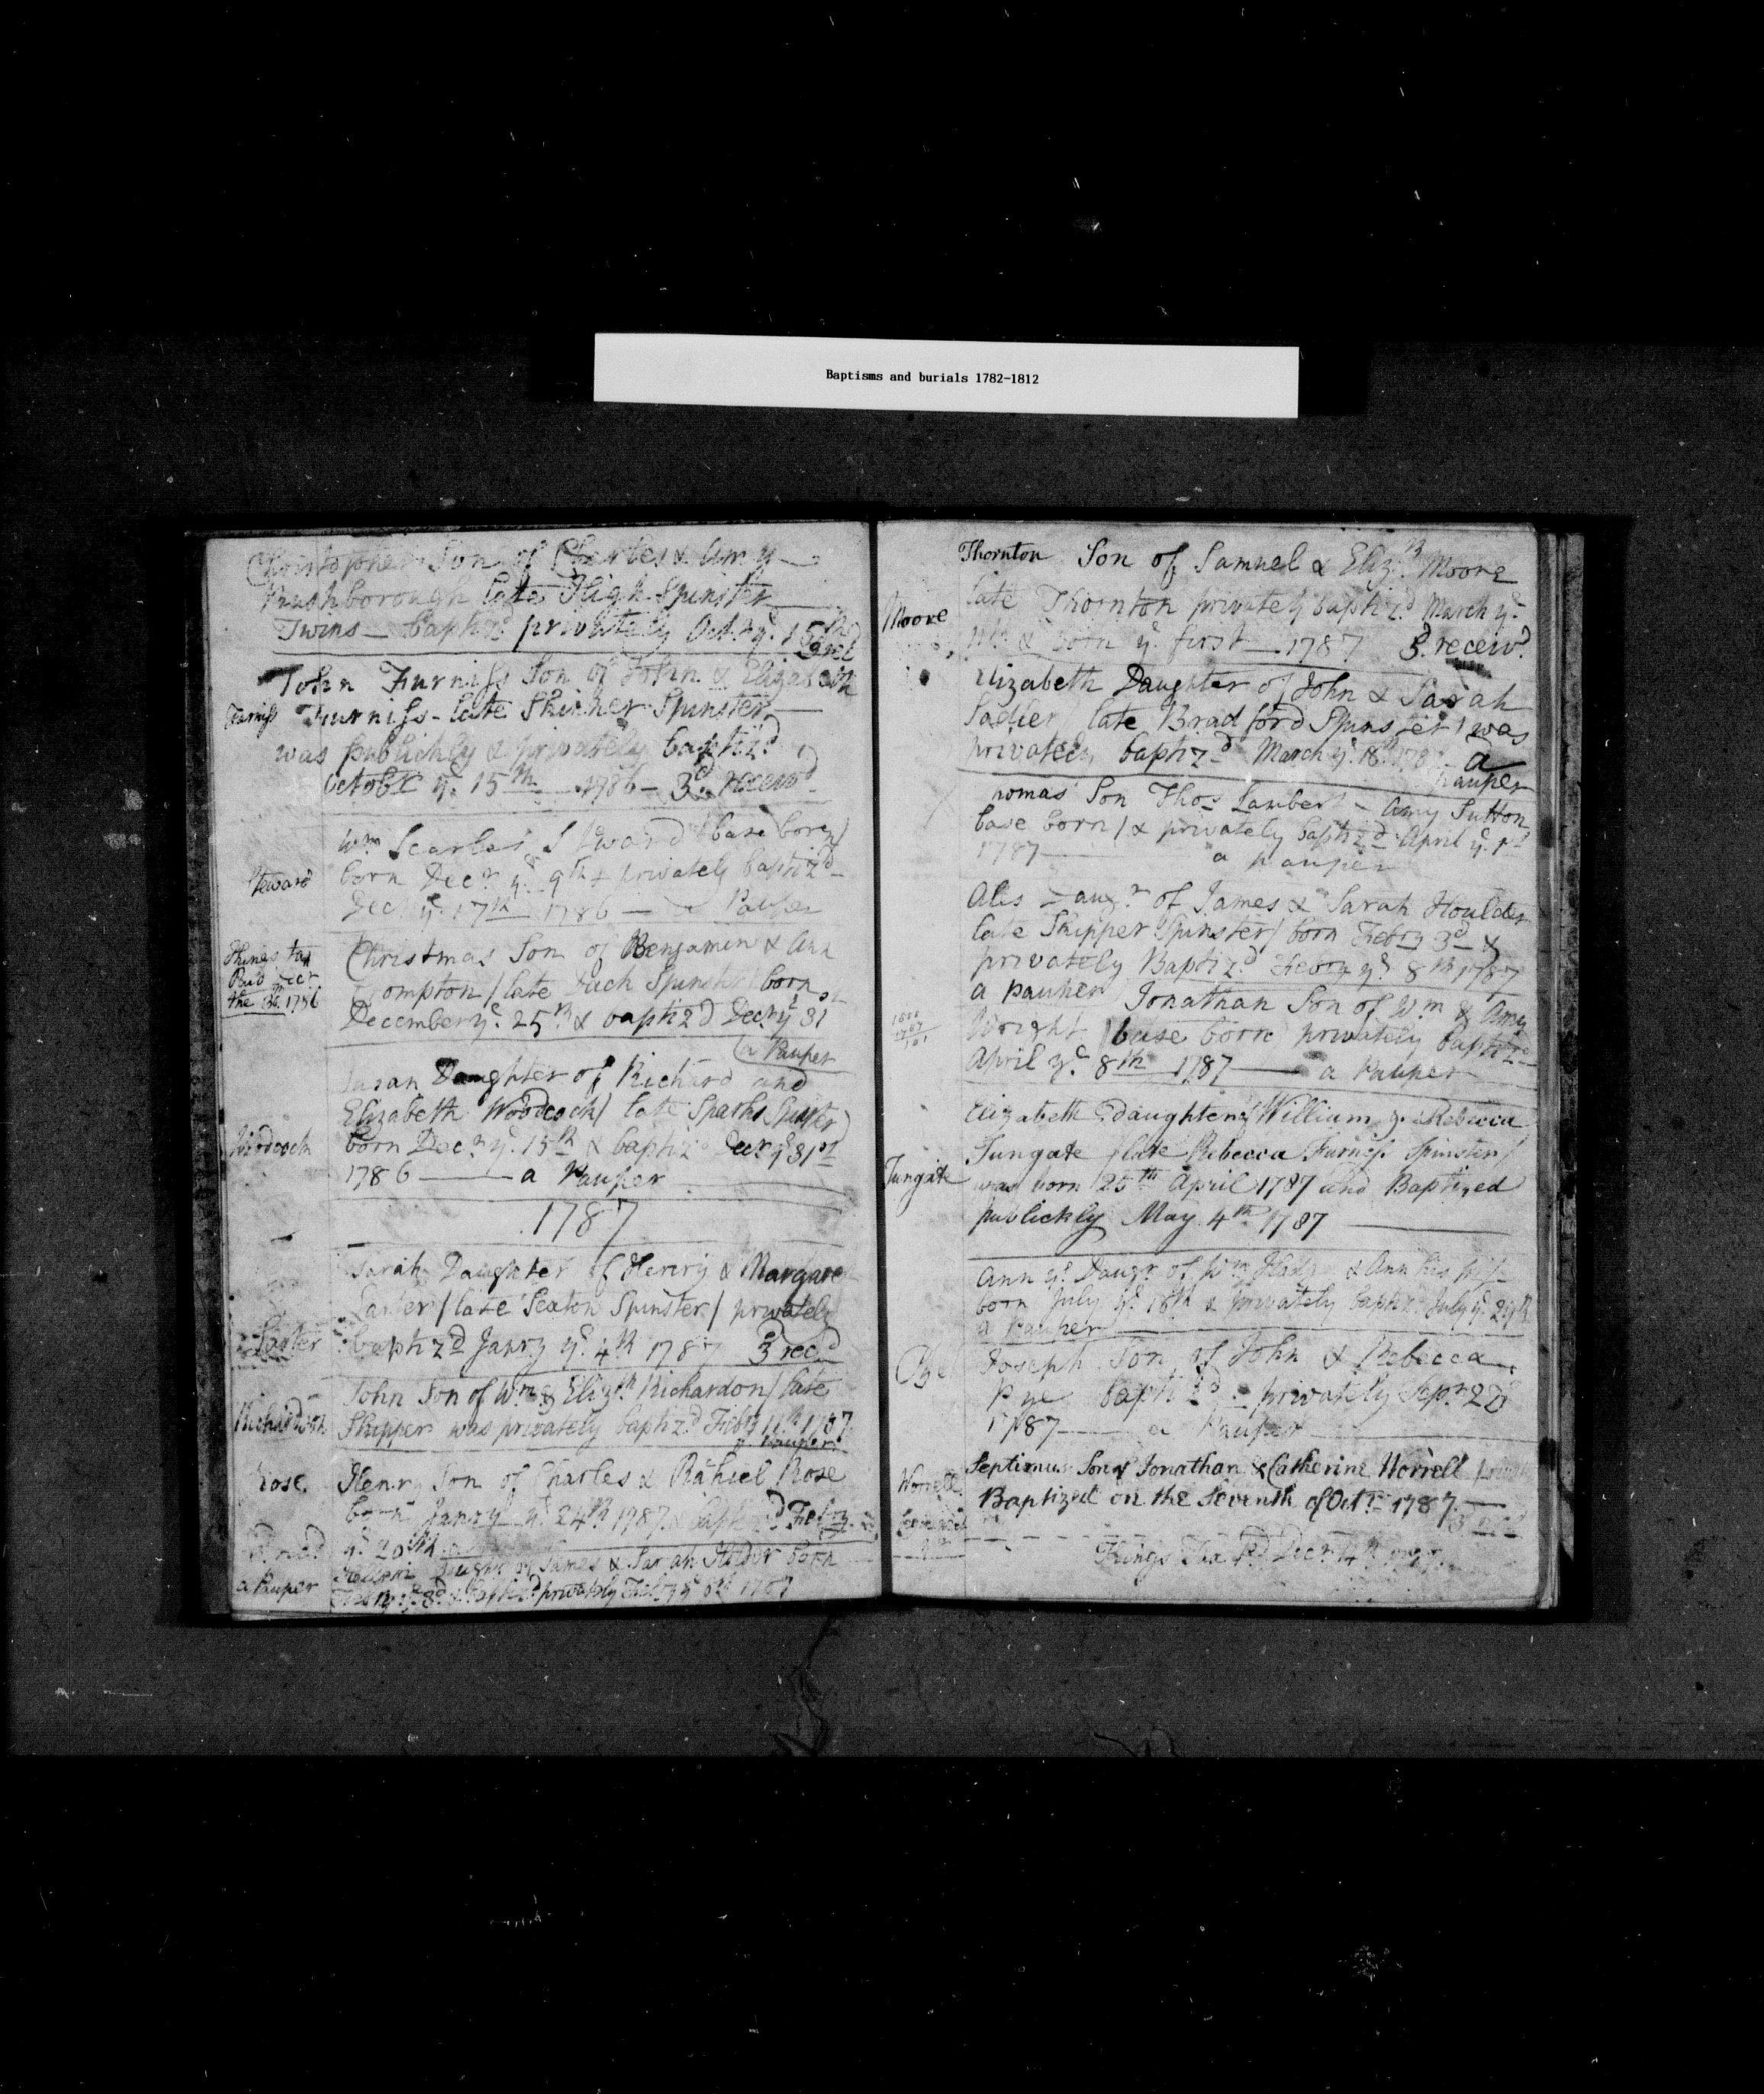 Baptisms and burials 1782-1812
Christopher Son of Charles & Amy
Rushborough late High Spinster
Twins - baptiz'd privately Octr ye 15th
3 rec
John Furniss Son of John & Elizabeth
Furniss
Furniss - late Skinner Spinster
was publickly & privately baptiz'd
October ye 15th 1786 - 3d receiv'd
Wm Scarles Steward (base born)
Steward
born Decr ye 9th & privately baptiz'd
Decr ye 17th 1786 - a Pauper
Things tax
Paid Decr
the 1786
Christmas Son of Benjamin & Ann
Crompton / late Spinster / born
December ye 25th & baptiz'd Decr ye 31st
a Pauper
Susan Daughter of Richard and
Elizabeth Woodcock / late Sparks Spinster
Woodcock
born Decr ye 15th & baptiz'd Decr ye 31st
1786 a Pauper
1787
Sarah Daughter of Henry & Margaret
Carter / late Seaton Spinster / privately
Carter
baptiz'd Janry ye 4th 1787 3 rec'd
John Son of Wm & Elizth Richardon / late
Richardson
Skipper was privately baptiz'd Febry 11th 1787
a Pauper
Rose
Henry Son of Charles & Rahiel Rose
born Janry ye 24th 1787 & baptiz'd Febry
ye 20th
Daughr of James & Sarah born
a Pauper
baptiz'd privately Febry ye 8th 1787
Thornton Son of Samuel & Elizth Moore
Moore
late Thornton privately baptiz'd March ye
11th & born ye first 1787 3d receiv'd
Elizabeth Daughter of John & Sarah
Sadler / late Bradford Spinster / was
privately baptiz'd March ye 18th a
pauper
Thomas Son Thos Lambert - Amy Sutton
base born / & privately baptiz'd April ye 1st
1787 a pauper
Alis Daugr of James & Sarah Houlder
late Skipper Spinster / born Febry 3d &
privately Baptiz'd Febry ye 8th 1787
a pauper Jonathan Son of Wm & Amy
Wright / base born privately baptiz'd
April ye 8th 1787 a Pauper
Elizabeth daughter of William & Rebecca
Tungate / late Rebecca Furness Spinster /
Tungate
was born 25th April 1787 and Baptized
publickly May 4th 1787
Ann ye Daugr of Wm & Ann his wife
born July ye 18th & privately baptiz'd July ye 29th
a Pauper
Pye
Joseph Son of John & Rebecca
Pye baptiz'd privately Sepr 20
1787 a Pauper
Worrell
Septimus Son of Jonathan & Catherine Worrell
Baptized on the Seventh of Octr 1787
Things Tax Pd Decr